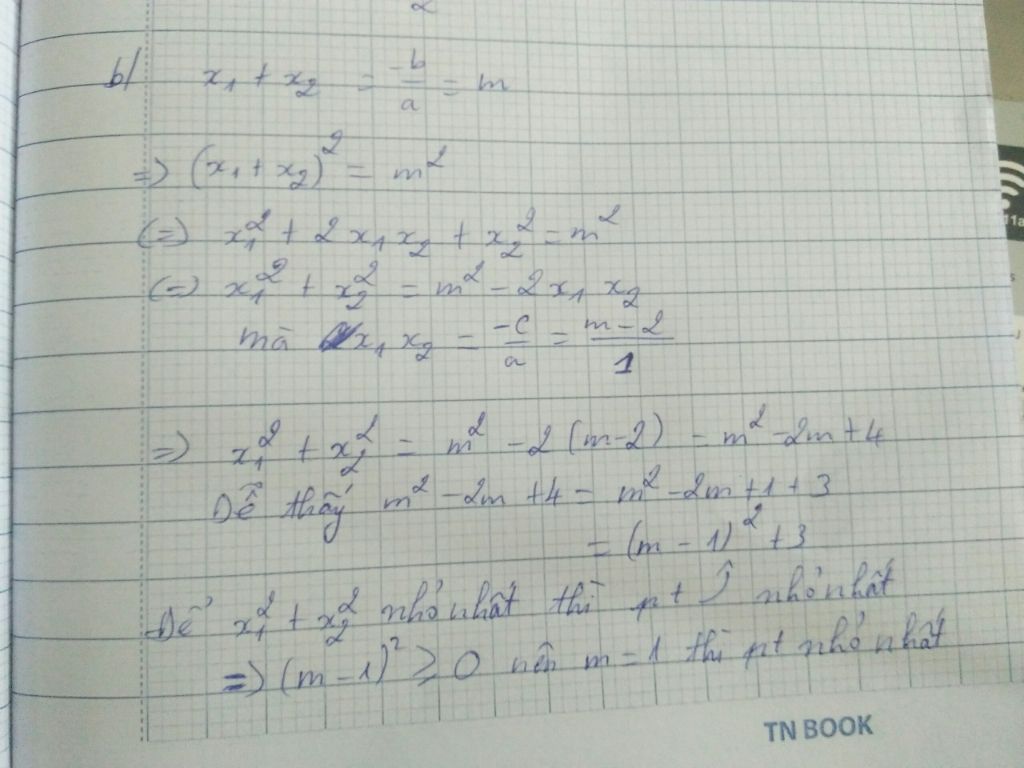 2
b/ x₁ + x₂ = -b/a = m
=> (x₁ + x₂)² = m²
(=) x₁² + 2x₁x₂ + x₂² = m²
(=) x₁² + x₂² = m² - 2x₁x₂
mà x₁x₂ = -c/a = m-2/1
=> x₁² + x₂² = m² - 2(m-2) = m² - 2m + 4
Dễ thấy m² - 2m + 4 = m² - 2m + 1 + 3
= (m - 1)² + 3
Để x₁² + x₂² nhỏ nhất thì pt nhỏ nhất
=> (m - 1)² ≥ 0 nên m = 1 thì pt nhỏ nhất
TN BOOK